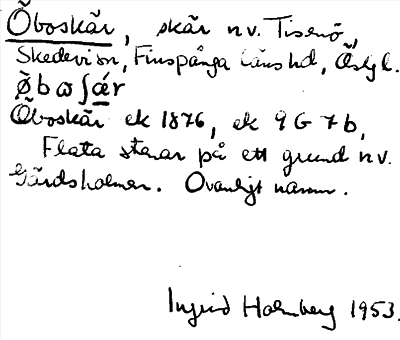 Öboskär, skär n v. Tisenö,
Skedevi sn, Finspånga läns hd, Östgl.
ø̀bωʃǽr
Öboskär ek 1876, ek 9 G 7 b,
Flata stenar på ett grund n v.
Gårdsholmen. Ovanligt namn.
Ingrid Holmberg 1953.